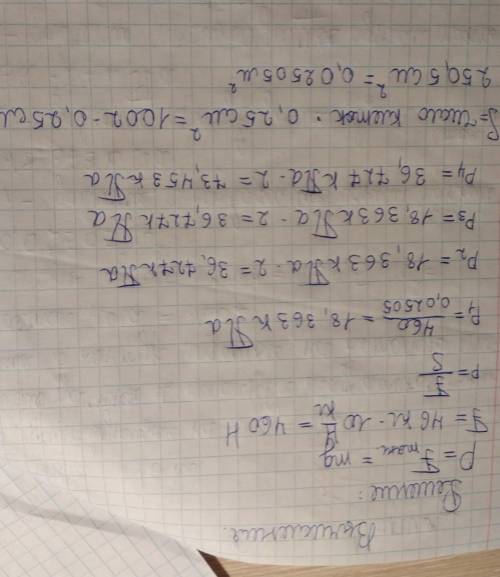 Вычисление.
Решение:
P = Fтяж = mg
F = 46 кг · 10 Н/кг = 460 Н
P = F/S
P₁ = 460/0,02505 = 18,363 кПа
P₂ = 18,363 кПа · 2 = 36,727 кПа
P₃ = 18,363 кПа · 2 = 36,727 кПа
P₄ = 36,727 кПа · 2 = 73,453 кПа
S = число клеток · 0,25 см² = 1002 · 0,25 см
250,5 см² = 0,02505 м²